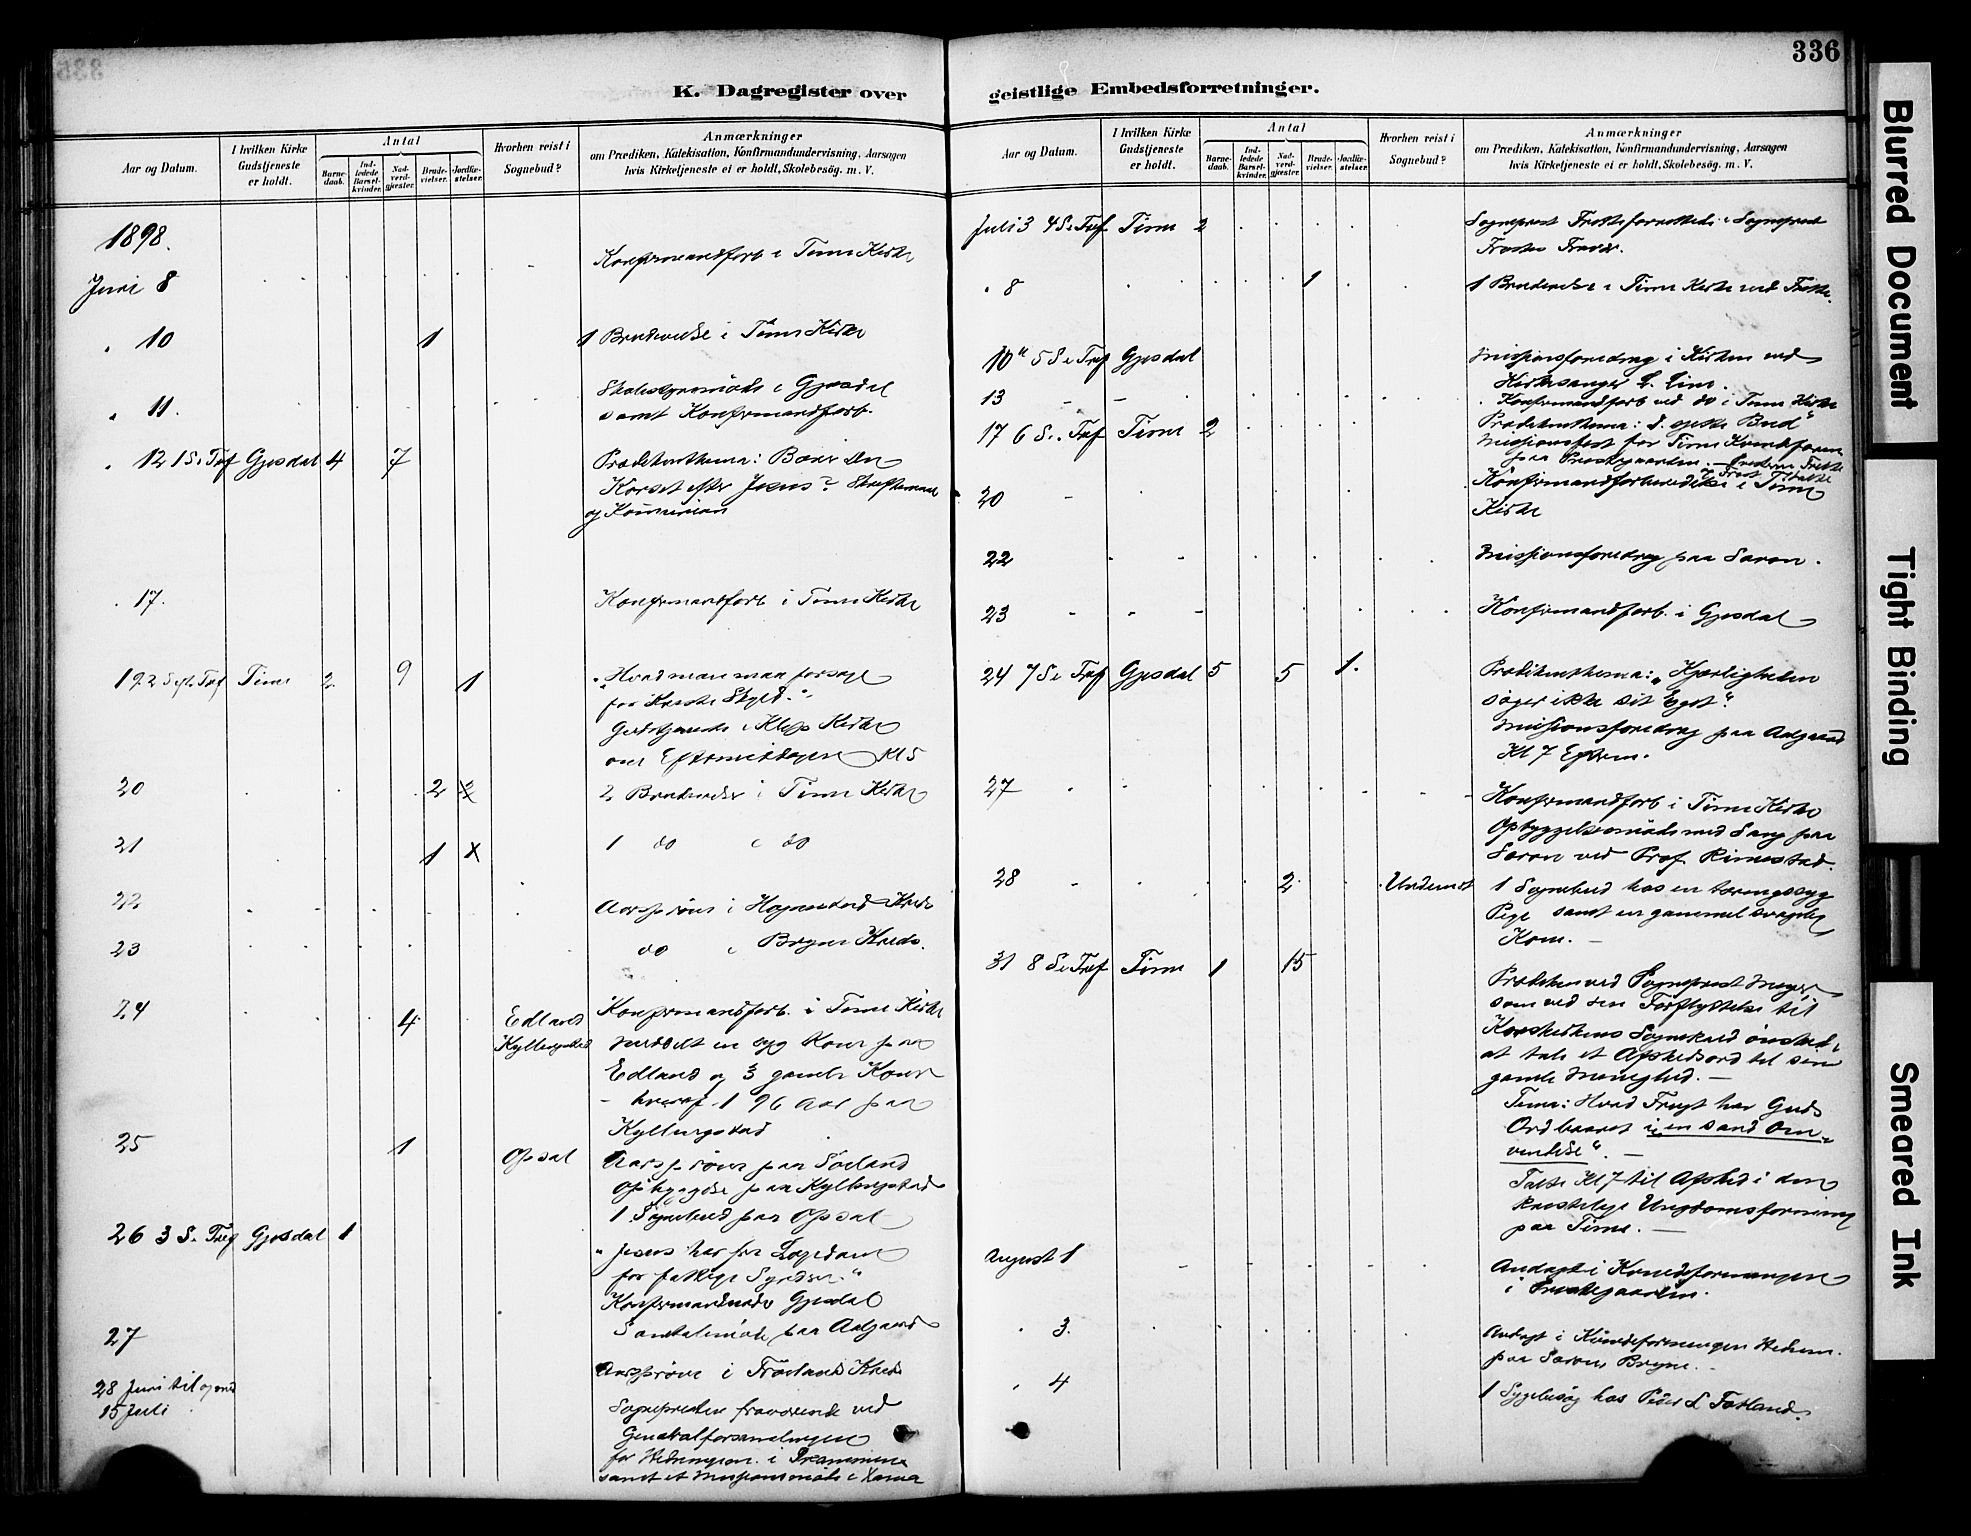 336
K. Dagregister over
geistlige Embedsforretninger.
Aar og Datum.
I hvilken Kirke Gudstjeneste er holdt.
Antal
Barnedaab.
Indledede Barselkvinder.
Nadverdgjæster.
Brudevielser.
Jordfæstelser.
Hvorhen reist i Sognebud?
Anmærkninger
om Prædiken, Katekisation, Konfirmandundervisning, Aarsagen
hvis Kirketjeneste ei er holdt, Skolebesøg. m. V.
1898.
Juni 8
Konfirmandforb i Time Kirke
" 10 1 1 Brudevielse i Time Kirke
" 11.
Skolestyremøde i Gjesdal
samt Konfirmandforb.
" 12 1 S. e. Tref Gjesdal 4 7
Prædikenthema: Bærer Du
Korset efter Jesus? Skriftemaal
og Kommunion
" 17.
Konfirmandforb i Time Kirke
19 2 S. eft. Tref Time 2 9 1
"Hvad man maa forsage
for Kristi Skyld."
Gudstjeneste i Klep Kirke
om Eftermiddagen Kl 5
20 2
2 Brudevielser i Time Kirke
21 1 x
1 do i do
22
Aarsprøve i Kreds
23
do i Bryne Kreds.
24 4 Edland
Kyllingstad
Konfirmandforb. i Time Kirke
meddelt en syg Kone paa
Edland og 3 gamle Koner
- hveraf 1 96 Aar paa
Kyllingstad
25 1 Opsal
Aarsprøve paa Sørland
Opbyggelse paa Kyllingstad
1 Sognebud paa Opsal
26 3 S. Tref Gjesdal 1
"Jesus har for
for fattige Syndere."
Konfirmandmøde Gjesdal
27
Samtalemøde paa Aalgaard
Aarsprøve i Frøilands Kreds
28 Juni til og med
15 Juli
Sognepresten fraværende ved
Generalforsamlingen
for i Drammen
samt et Missionsmøde i
Aar og Datum.
I hvilken Kirke Gudstjeneste er holdt.
Antal
Barnedaab.
Indledede Barselkvinder.
Nadverdgjæster.
Brudevielser.
Jordfæstelser.
Hvorhen reist i Sognebud?
Anmærkninger
om Prædiken, Katekisation, Konfirmandundervisning, Aarsagen
hvis Kirketjeneste ei er holdt, Skolebesøg. m. V.
Juli 3 4 S. e. Tref Time 2
Sogneprest forrettede i Sogneprest
" 8 1
1 Brudevielse i Time Kirke ved
10 5 S e Tref Gjesdal
Missionsforedrag i Kirken ved
Kirkesanger L. Lima.
13
Konfirmandforb ved do i Time Kirke
17 6 S. e. Tref Time 2
Prædikenthema: d. sjette Bud
Missionsfest for Time Kvindeforen
paa Prestegaarden.
20
Konfirmandforberedelse i Time
Kirke
22
Missionsforedrag paa Saron.
23
Konfirmandforb. i Gjesdal
24 7 S e Tref Gjesdal 5 5 1.
Prædikenthema: "Kjærligheden
søger ikke sit Eget".
Missionsforedrag paa Aalgaard
Kl 7 Efterm.
27
Konfirmandforb i Time Kirke
Opbyggelsesmøde med Sang paa
Saron ved Prof. Rimestad.
28 2 Undemot
1 Sognebud hos en tæringssyg
Pige samt en gammel svagelig
Kone. -
31 8 S e Tref Time 1 15
Prædiken ved Sogneprest Meyer
som ved sin Forflyttelse til
Korskirkens Sognekald ønskede
at tale et Afskedsord til sin
gamle Menighed. -
Tema: Hvad Frugt har Guds
Ord baaret i "en sand Om-
vendelse". -
Talte Kl 7 til Afsked i den
kristelige Ungdomsforening
paa Time. -
August 1
Andagt i Kvindeforeningen
i Prestegaarden.
" 3.
Andagt i Kvindeforeningen
paa Saron Bryne. -
" 4
1 Sygebesøg hos Peder L Tarland.
Blurred Document
Tight Binding
Smeared Ink